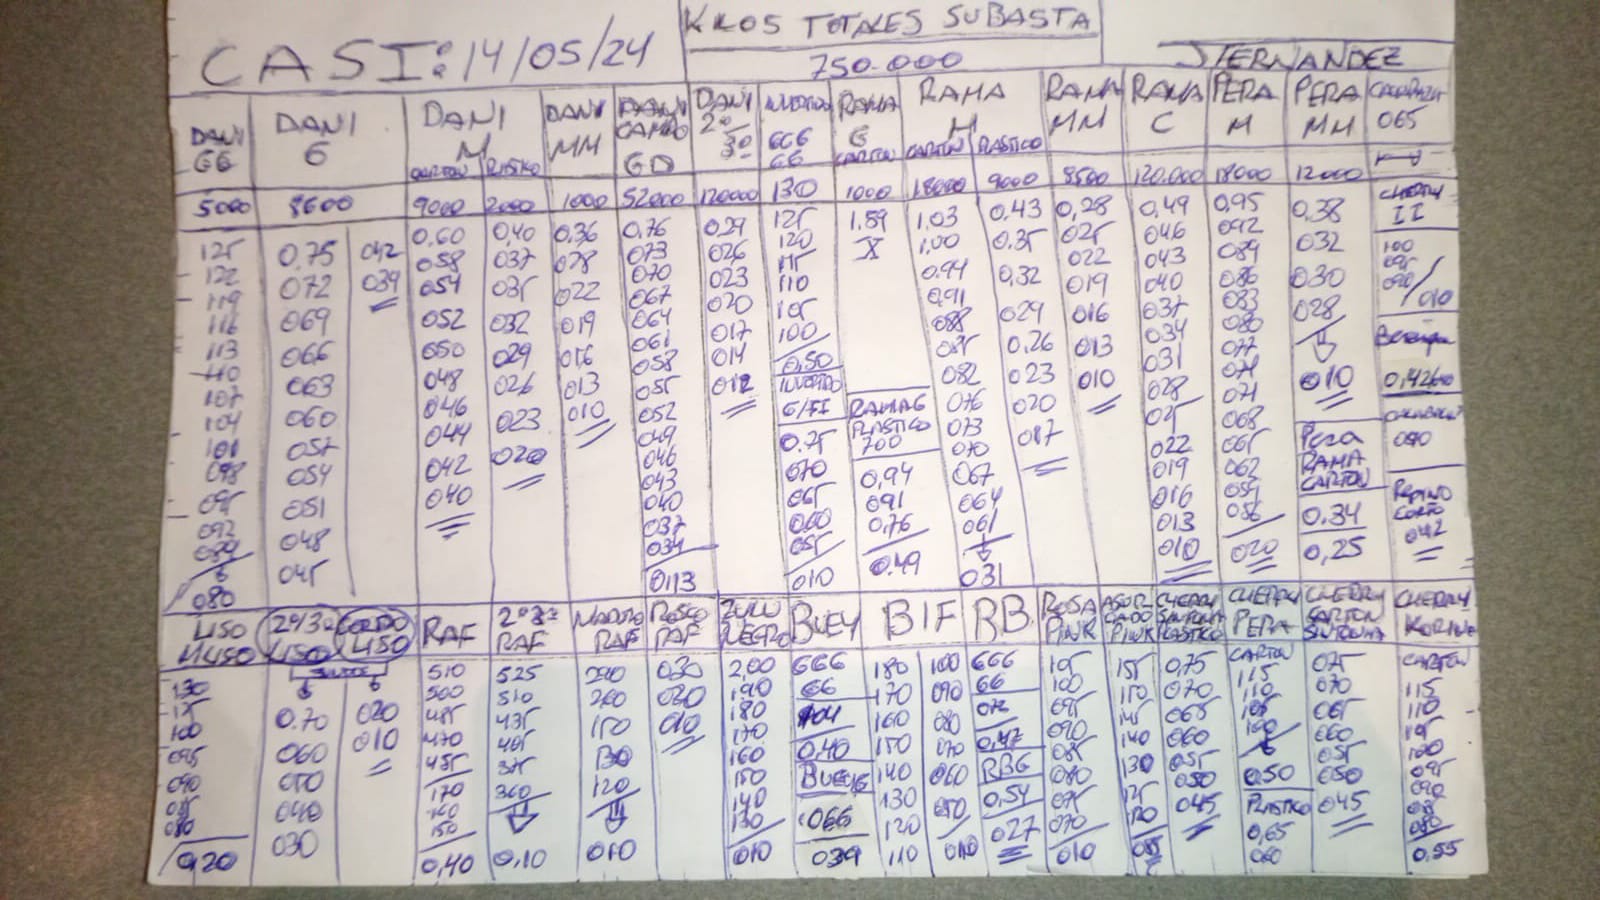 KILOS TOTALES SUBASTA
CASI: 14/05/24
750.000
J FERNANDEZ
DANI GG
DANI G
DANI M
CARTON PLASTICO
DANI MM
DANI CAMPO GD
DANI 2ª 3ª
INVERTIDO GGG GG
RAMA G CARTON
RAMA M
CARTON PLASTICO
RAMA MM
RAMA C
PERA M
PERA MM
065
5000 8600 9000 2000 1000 52000 120000 130 1000 18000 9000 8500 120.000 18000 12000
CHERRY II
125 122 119 116 113 110 107 104 101 098 095 092 089 080
0.75 072 069 066 063 060 057 054 051 048 045
042 039
0,60 058 054 052 050 048 046 044 042 040
0,40 037 035 032 029 026 023 020
0,36 028 022 019 016 013 010
0.76 073 070 067 064 061 058 055 052 049 046 043 040 037 034 0113
0,29 026 023 020 017 014 012
125 120 115 110 105 100 0,50
INVERTIDO G/FI
0.75 070 065 060 055 010
1.89 X
RAMA G PLASTICO 700
0,94 091 0,76 0.49
1,03 1,00 0.94 0,91 088 085 082 076 073 070 067 064 061 031
0.43 0.35 0,32 029 0.26 023 020 017
0,28 025 022 019 016 013 010
0,49 046 043 040 037 034 031 028 025 022 019 016 013 010
0.95 092 089 086 083 080 077 074 071 068 065 062 059 056 020
0.38 032 030 028 010
PERA RAMA CARTON
0.34
0,25
100 095 090 / 010
Berenjena
0,42
090
PEPINO CORTO
042
LISO M LISO
2ª/3ª LISO
GORDO LISO
RAF
2ª 3ª RAF
MADURO RAF
ROSCO RAF
ZULU NEGRO
BUEY
BIF
RB
ROSA PINK
ASUR CADO PINK
CHERRY SINTONIA PLASTICO
CHERRY PERA
CHERRY CARTON SINTONIA
CHERRY KORINE
130 125 100 095 090 085 080 0,20
0.70 060 050 040 030
020 010
510 500 485 470 455 170 160 150 0,40
525 510 435 405 375 360 0,10
290 260 150 130 120 010
030 020 010
2,00 1.90 180 170 160 150 140 130 010
GGG GG 0,40
BUEY G
066
039
180 170 160 150 140 130 120 110
100 090 080 070 060 050 010
GGG GG 0,47
RBG
0,54
027
105 100 095 090 085 080 075 070 010
155 150 145 140 130 125 120 085
0,75 070 065 060 055 050 045
CARTON
115 110 105 100 0,50
PLASTICO
0,65
060
075 070 065 060 055 050 045
CARTON
115 110 105 100 095 090 085 080 0,55